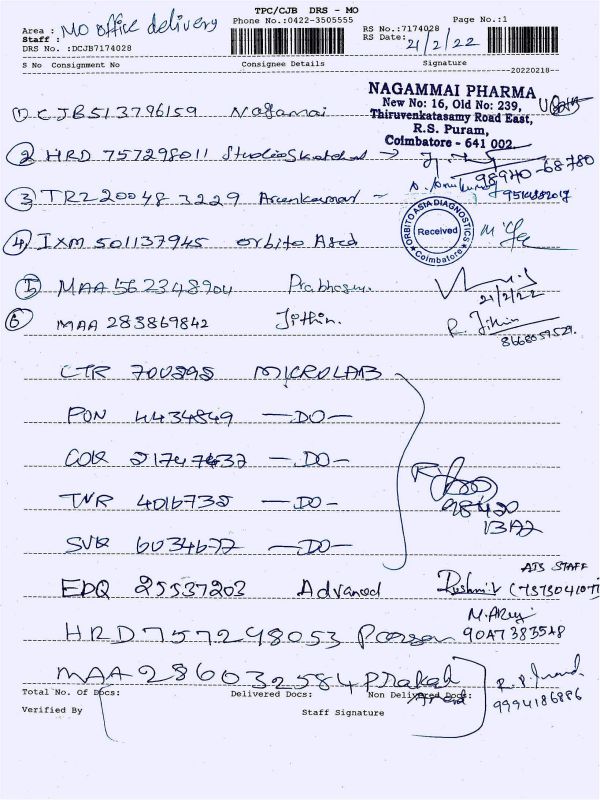 TPC/CJB DRS - MO
Area : MO office delivery Phone No.:0422-3505555 RS No.:7174028 Page No.:1
Staff : RS Date: 21/2/22
DRS No. :DCJB7174028
S No Consignment No Consignee Details Signature
20220218
NAGAMMAI PHARMA
New No: 16, Old No: 239,
Thiruvenkatasamy Road East,
R.S. Puram,
Coimbatore - 641 002.
1 CJB513796159 Nagamai
2 HRD 757298011 StudioSketches
98940-68780
3 TRZ200483229 Arunkumar
ORBITO ASIA DIAGNOSTICS
Received
Coimbatore
4 IXM 501137945 Orbito Ased
5 MAA 562348904 Prabhosm.
21/2/22
6 MAA 283869842 Jithin.
R. Jithin
8668059529.
CTR 700595 MICROLAB
PON 4434849 —DO—
COK 21747437 —DO—
TNR 4016735 —DO—
98420
SVK 6034677 —DO—
ATS STAFF
EDQ 25537203 Advanced Reshmi (7373041077)
HRD757298053 Poorson
9047383548
MAA286032584 Prakash
Total No. Of Docs: Delivered Docs: Non Delivered Docs:
9994186886
Verified By Staff Signature